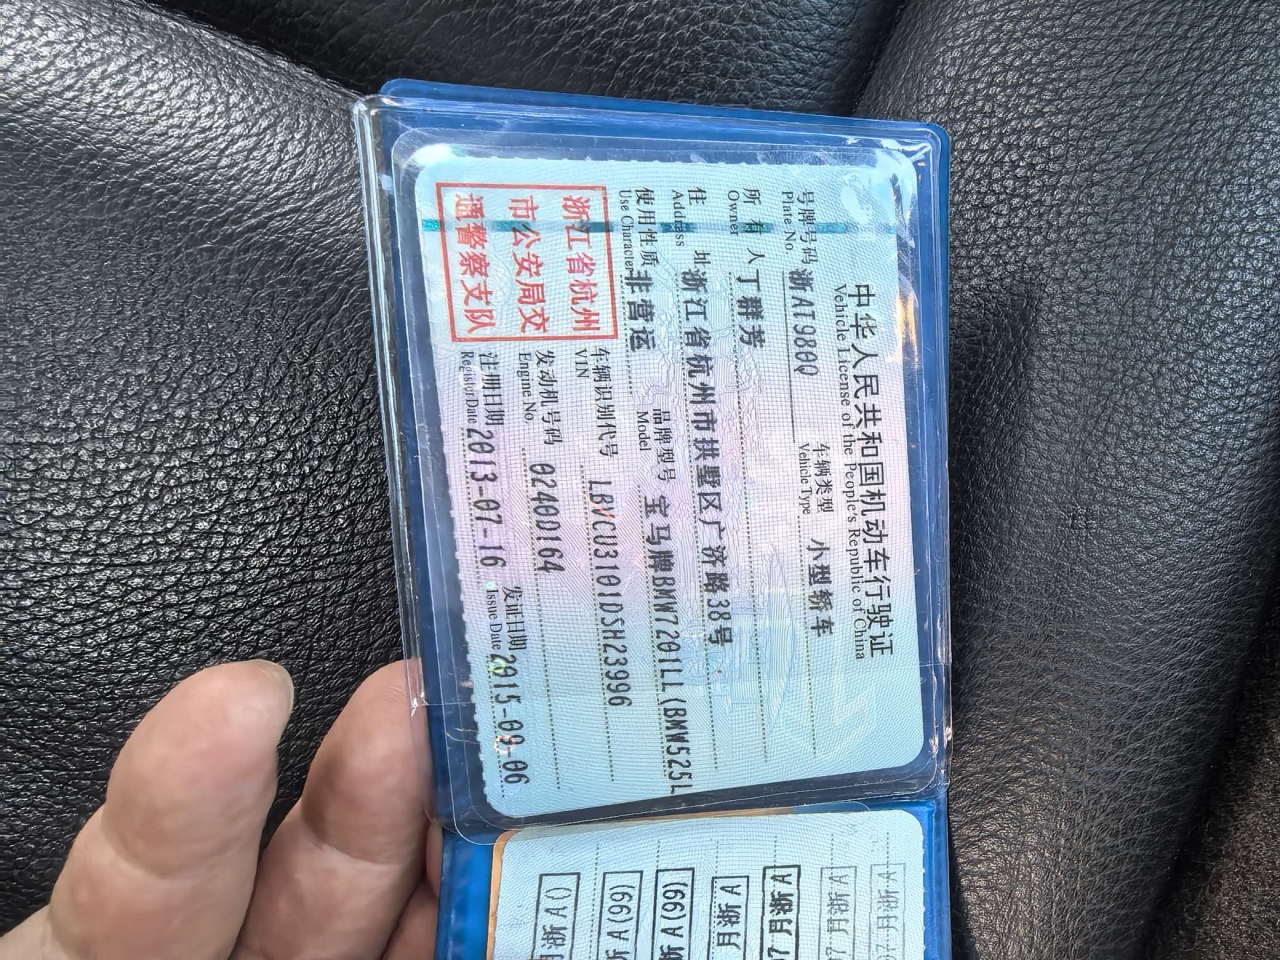 中华人民共和国机动车行驶证
Vehicle License of the People's Republic of China
号牌号码 浙AT980Q 车辆类型 小型轿车
Plate No. Vehicle Type
所有人 丁群芳
Owner
住址 浙江省杭州市拱墅区广济路38号
Address
使用性质 非营运 品牌型号 宝马牌BMW7201LL(BMW525L
Use Character Model
浙江省杭州
市公安局交
通警察支队
车辆识别代号 LBVCU3101DSH23996
VIN
发动机号码 0240D164
Engine No.
注册日期 2013-07-16 发证日期 2015-09-06
Register Date Issue Date
月浙A
7月浙A
07月浙A
月浙A
浙A(99)
浙A(99)
月浙A()